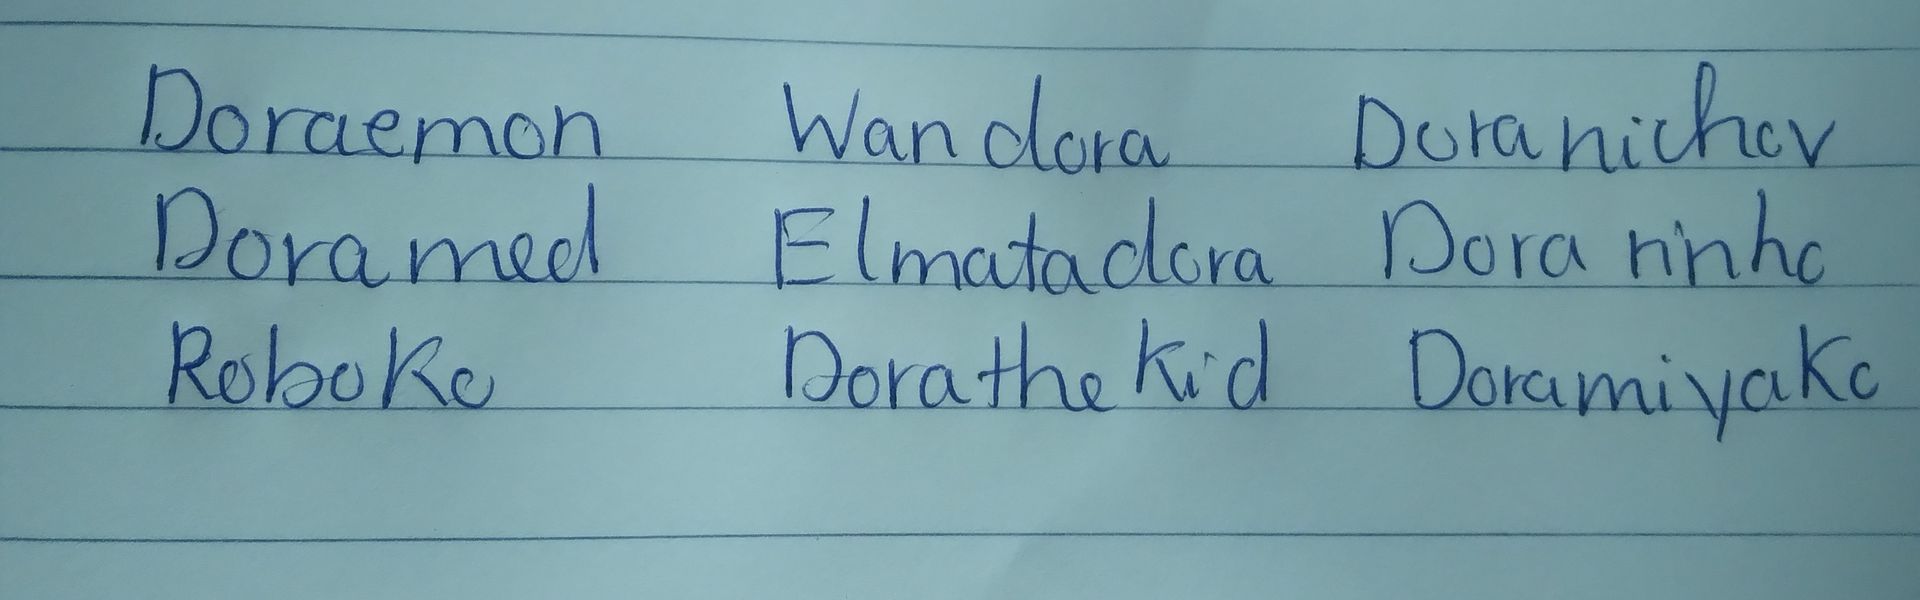 Doraemon Wandora Doranichov
Doramed Elmatadora Dora rinho
Roboko Dorathe Kid Doramiyako